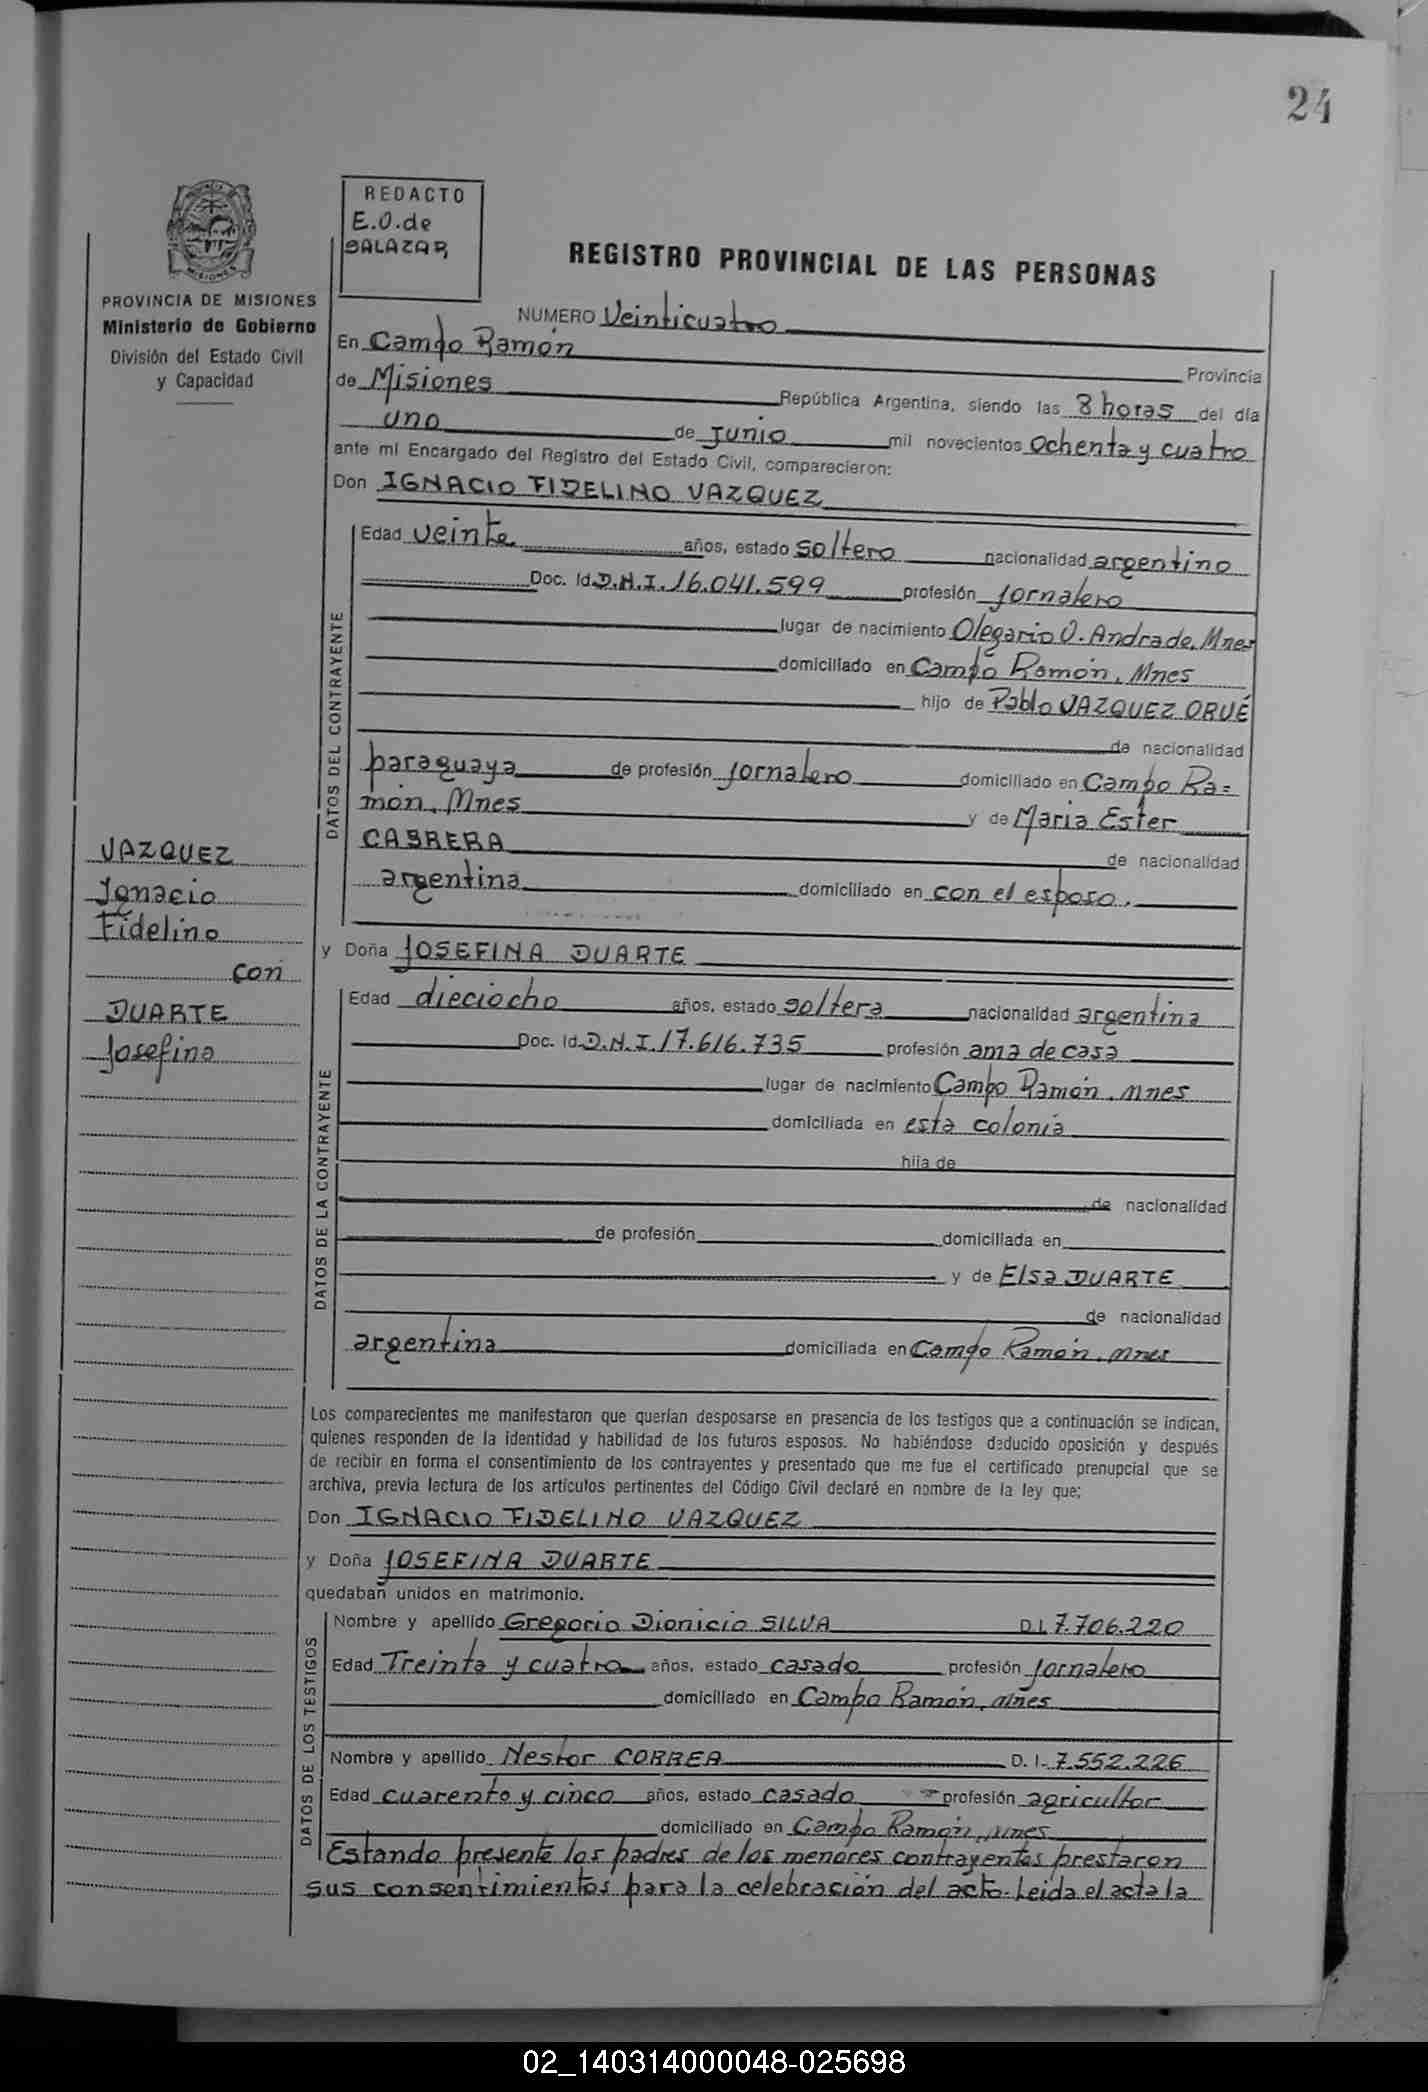 24
REDACTO
E.O.de
SALAZAR
REGISTRO PROVINCIAL DE LAS PERSONAS
PROVINCIA DE MISIONES
Ministerio de Gobierno
División del Estado Civil
y Capacidad
NUMERO Veinticuatro
En Campo Ramón Provincia
de Misiones República Argentina, siendo las 8 horas del día
uno de junio mil novecientos ochenta y cuatro
ante mi Encargado del Registro del Estado Civil, comparecieron:
Don IGNACIO FIDELINO VAZQUEZ
DATOS DEL CONTRAYENTE
Edad veinte años, estado soltero nacionalidad argentino
Doc. Id. D.N.I. 16.041.599 profesión jornalero
lugar de nacimiento Olegario V. Andrade, Mnes
domiciliado en Campo Ramón, Mnes
hijo de Pablo VAZQUEZ ORUÉ
de nacionalidad
paraguaya de profesión jornalero domiciliado en Campo Ra=
món, Mnes y de Maria Ester
CABRERA de nacionalidad
argentina domiciliado en con el esposo.
VAZQUEZ
Ignacio
Fidelino
con
DUARTE
Josefina
y Doña JOSEFINA DUARTE
DATOS DE LA CONTRAYENTE
Edad dieciocho años, estado soltera nacionalidad argentina
Doc. Id. D.N.I. 17.616.735 profesión ama de casa
lugar de nacimiento Campo Ramón, Mnes
domiciliada en esta colonia
hija de
de nacionalidad
de profesión domiciliada en
y de Elsa DUARTE
de nacionalidad
argentina domiciliada en Campo Ramón, Mnes
Los comparecientes me manifestaron que querían desposarse en presencia de los testigos que a continuación se indican,
quienes responden de la identidad y habilidad de los futuros esposos. No habiéndose deducido oposición y después
de recibir en forma el consentimiento de los contrayentes y presentado que me fue el certificado prenupcial que se
archiva, previa lectura de los artículos pertinentes del Código Civil declaré en nombre de la ley que:
Don IGNACIO FIDELINO VAZQUEZ
y Doña JOSEFINA DUARTE
quedaban unidos en matrimonio.
DATOS DE LOS TESTIGOS
Nombre y apellido Gregorio Dionicio SILVA D.I. 7.706.220
Edad Treinta y cuatro años, estado casado profesión jornalero
domiciliado en Campo Ramón, Mnes
Nombre y apellido Nestor CORREA D. I. 7.552.226
Edad cuarenta y cinco años, estado casado profesión agricultor
domiciliado en Campo Ramón, Mnes
Estando presente los padres de los menores contrayentes prestaron
sus consentimientos para la celebración del acto. Leida el acta la
02_140314000048-025698